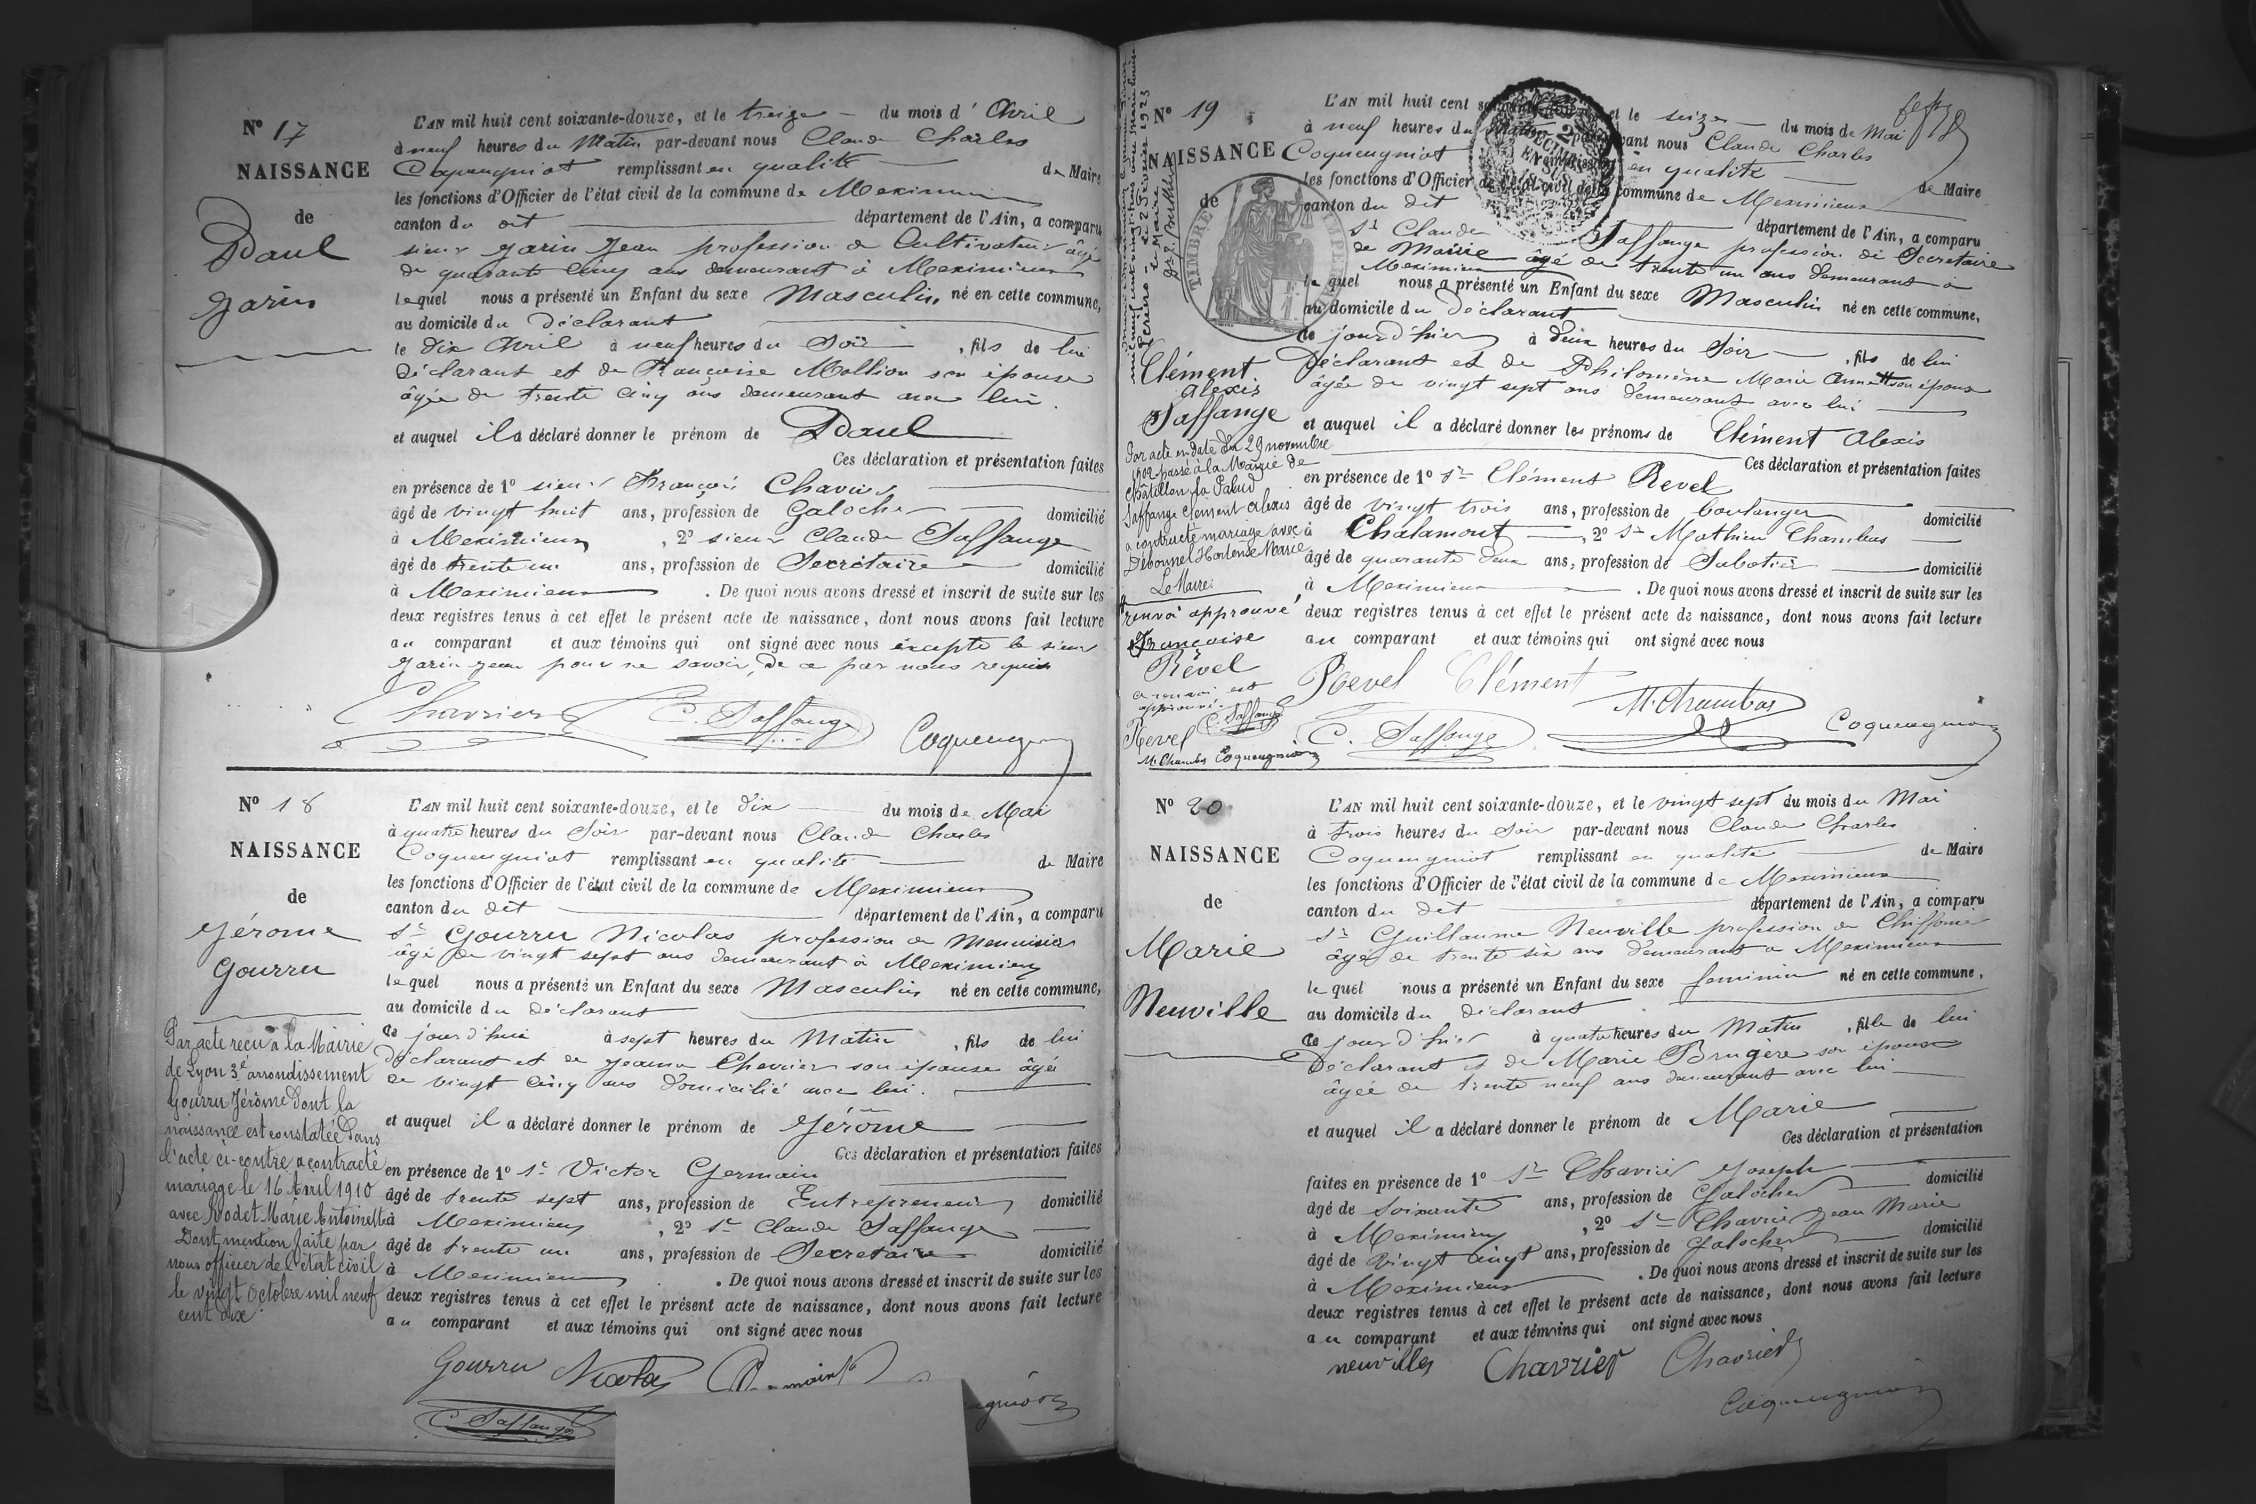 N° 17
NAISSANCE
de
Paul
Garin
L'AN mil huit cent soixante-douze, et le treize du mois d' Avril
à neuf heures du Matin par-devant nous Claude Charles
Coqueugniot remplissant en qualité de Maire
les fonctions d'Officier de l'état civil de la commune de Meximieux
canton du dit département de l'Ain, a comparu
sieur Garin Jean profession de Cultivateur âgé
de quarante cinq ans demeurant à Meximieux
lequel nous a présenté un Enfant du sexe Masculin, né en cette commune,
au domicile du Déclarant
le dix Avril à neuf heures du Soir , fils de lui
Déclarant et de Françoise Mollion son épouse
âgée de trente cinq ans demeurant avec lui.
et auquel il a déclaré donner le prénom de Paul
Ces déclaration et présentation faites
en présence de 1° sieur François
âgé de vingt huit ans, profession de Galocher domicilié
à Meximieux , 2° sieur Claude Saffange
âgé de trente un ans, profession de Secrétaire domicilié
à Meximieux . De quoi nous avons dressé et inscrit de suite sur les
deux registres tenus à cet effet le présent acte de naissance, dont nous avons fait lecture
au comparant et aux témoins qui ont signé avec nous excepté le sieur
Garin Jean pour ne savoir, de ce par nous requis
Chavrier C. Saffange Coqueugniot
N° 18
NAISSANCE
de
Jérome
Gourru
Par acte reçu à la Mairie
de Lyon 3e arrondissement
Gourru Jérôme dont la
naissance est constatée dans
l'acte ci-contre a contracté
mariage le 16 Avril 1910
avec Rodet Marie Antoinette
Dont mention faite par
nous officier de l'état civil
le vingt Octobre mil neuf
cent dix
L'AN mil huit cent soixante-douze, et le dix du mois de Mai
à quatre heures du Soir par-devant nous Claude Charles
Coqueugniot remplissant en qualité de Maire
les fonctions d'Officier de l'état civil de la commune de Meximieux
canton du dit département de l'Ain, a comparu
Sr Gourru Nicolas profession de Menuisier
âgé de vingt sept ans demeurant à Meximieux
lequel nous a présenté un Enfant du sexe Masculin né en cette commune,
au domicile du déclarant
ce jourd'hui à sept heures du Matin , fils de lui
Déclarant et de Jeanne Chevrier son épouse âgé
de vingt cinq ans domicilié avec lui.
et auquel il a déclaré donner le prénom de Jérôme
Ces déclaration et présentation faites
en présence de 1° Sr Victor Germain
âgé de trente sept ans, profession de Entrepreneur domicilié
à Meximieux , 2° Sr Claude Saffange
âgé de trente un ans, profession de Secretaire domicilié
à Meximieux . De quoi nous avons dressé et inscrit de suite sur les
deux registres tenus à cet effet le présent acte de naissance, dont nous avons fait lecture
au comparant et aux témoins qui ont signé avec nous
Gourru Nicolas
C. Saffange
N° 19
NAISSANCE
de
TIMBRE IMPERIAL
Clément
Alexis
Saffange
Par acte en date du 29 novembre
1902 passé à la Mairie de
Châtillon la Palud
Saffange Clément Alexis
a contracté mariage avec
Débonnet Hortense Marie
Le Maire:
renvoi approuvé
Françoise
Révél
ce renvoi est
approuvé.
Revel C. Saffange
M. Chambas Coqueugniot
L'AN mil huit cent et le seize du mois de Mai
à neuf heures du Matin nous Claude Charles
Coqueugniot en qualité de Maire
les fonctions d'Officier de l'état civil de la commune de Meximieux
canton du dit département de l'Ain, a comparu
Sr Claude Saffange profession de Secretaire
de Mairie âgé de trente un ans demeurant à
Meximieux
lequel nous a présenté un Enfant du sexe Masculin né en cette commune,
au domicile du Déclarant
ce jourd'hier à deux heures du Soir , fils de lui
Déclarant et de Philomène Marie Annette son épouse
âgée de vingt sept ans demeurant avec lui
et auquel il a déclaré donner les prénoms de Clément Alexis
Ces déclaration et présentation faites
en présence de 1° Sr Clément Revel
âgé de vingt trois ans, profession de boulanger domicilié
à Chalamont , 2° Sr Mathieu Chambas
âgé de quarante deux ans, profession de Sabotier domicilié
à Meximieux . De quoi nous avons dressé et inscrit de suite sur les
deux registres tenus à cet effet le présent acte de naissance, dont nous avons fait lecture
au comparant et aux témoins qui ont signé avec nous
Revel Clément M. Chambas
C. Saffange Coqueugniot
N° 20
NAISSANCE
de
Marie
Neuville
L'AN mil huit cent soixante-douze, et le vingt sept du mois du Mai
à trois heures du Soir par-devant nous Claude Charles
Coqueugniot remplissant en qualité de Maire
les fonctions d'Officier de l'état civil de la commune de Meximieux
canton du dit département de l'Ain, a comparu
Sr Guillaume Neuville profession de Chiffonier
âgé de trente six ans demeurant à Meximieux
lequel nous a présenté un Enfant du sexe feminin né en cette commune,
au domicile du déclarant
ce jourd'hier à quatre heures du Matin , fille de lui
Déclarant et de Marie Brugère son épouse
âgée de trente neuf ans demeurant avec lui
et auquel il a déclaré donner le prénom de Marie
Ces déclaration et présentation
faites en présence de 1° Sr Chavrier Joseph
âgé de Soixante ans, profession de Galocher domicilié
à Meximieux , 2° Sr Chavrier Jean Marie
âgé de vingt cinq ans, profession de Galocher domicilié
à Meximieux . De quoi nous avons dressé et inscrit de suite sur les
deux registres tenus à cet effet le présent acte de naissance, dont nous avons fait lecture
au comparant et aux témoins qui ont signé avec nous
neuville Chavrier Chavrier
Coqueugniot